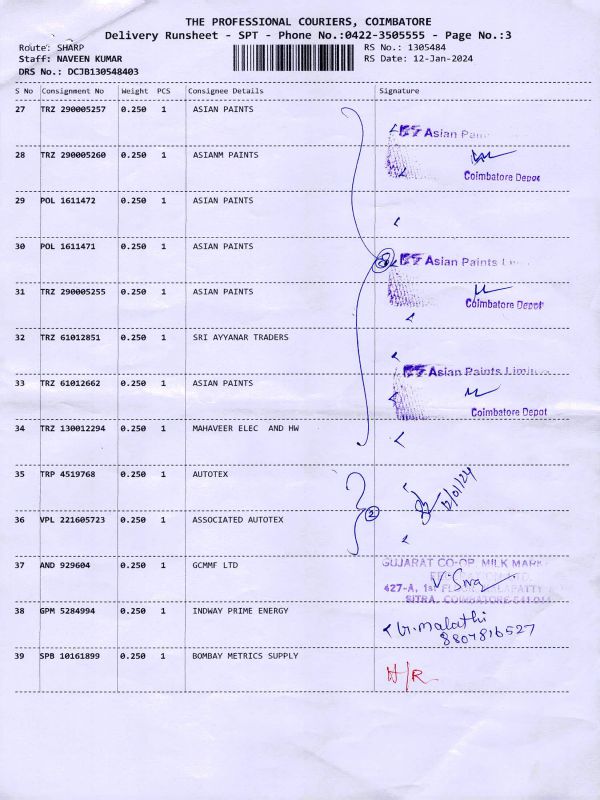 THE PROFESSIONAL COURIERS, COIMBATORE
Delivery Runsheet - SPT - Phone No.:0422-3505555 - Page No.:3
Route: SHARP
RS No.: 1305484
Staff: NAVEEN KUMAR
RS Date: 12-Jan-2024
DRS No.: DCJB130548403
S No Consignment No Weight PCS Consignee Details Signature
27 TRZ 290005257 0.250 1 ASIAN PAINTS
Asian Pain
28 TRZ 290005260 0.250 1 ASIANM PAINTS
Coimbatore Depot
29 POL 1611472 0.250 1 ASIAN PAINTS
30 POL 1611471 0.250 1 ASIAN PAINTS
8 Asian Paints Li
31 TRZ 290005255 0.250 1 ASIAN PAINTS
Coimbatore Depot
32 TRZ 61012851 0.250 1 SRI AYYANAR TRADERS
Asian Paints Limited
33 TRZ 61012662 0.250 1 ASIAN PAINTS
Coimbatore Depot
34 TRZ 130012294 0.250 1 MAHAVEER ELEC AND HW
35 TRP 4519768 0.250 1 AUTOTEX
12/01/24
2
36 VPL 221605723 0.250 1 ASSOCIATED AUTOTEX
37 AND 929604 0.250 1 GCMMF LTD
GUJARAT CO-OP. MILK MARK
427-A, 1st FLOOR
SITRA, COIMBATORE-641 014
38 GPM 5284994 0.250 1 INDWAY PRIME ENERGY
G. Malathi
8807816527
39 SPB 10161899 0.250 1 BOMBAY METRICS SUPPLY
H/R